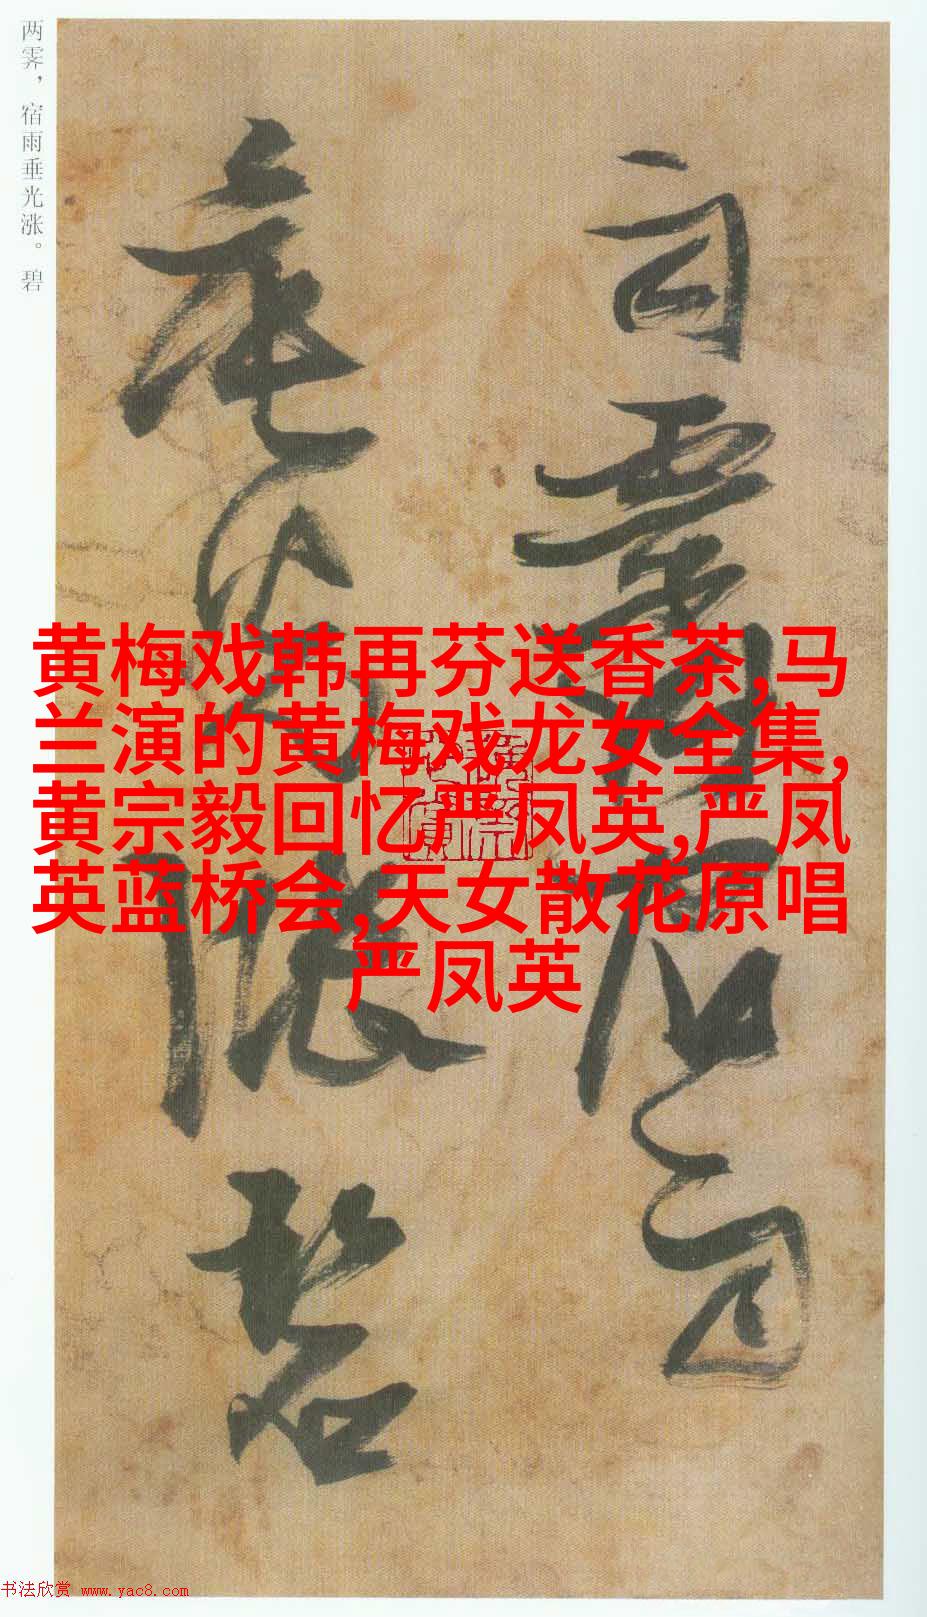 两霁，宿雨垂光涨。碧
两霁宿雨
垂光涨碧
黄梅戏韩再芬送香茶,马
兰演的黄梅戏龙女全集,
黄宗毅回忆严凤英,严凤
英蓝桥会,天女散花原唱
严凤英
书法欣赏 www.yac8.com